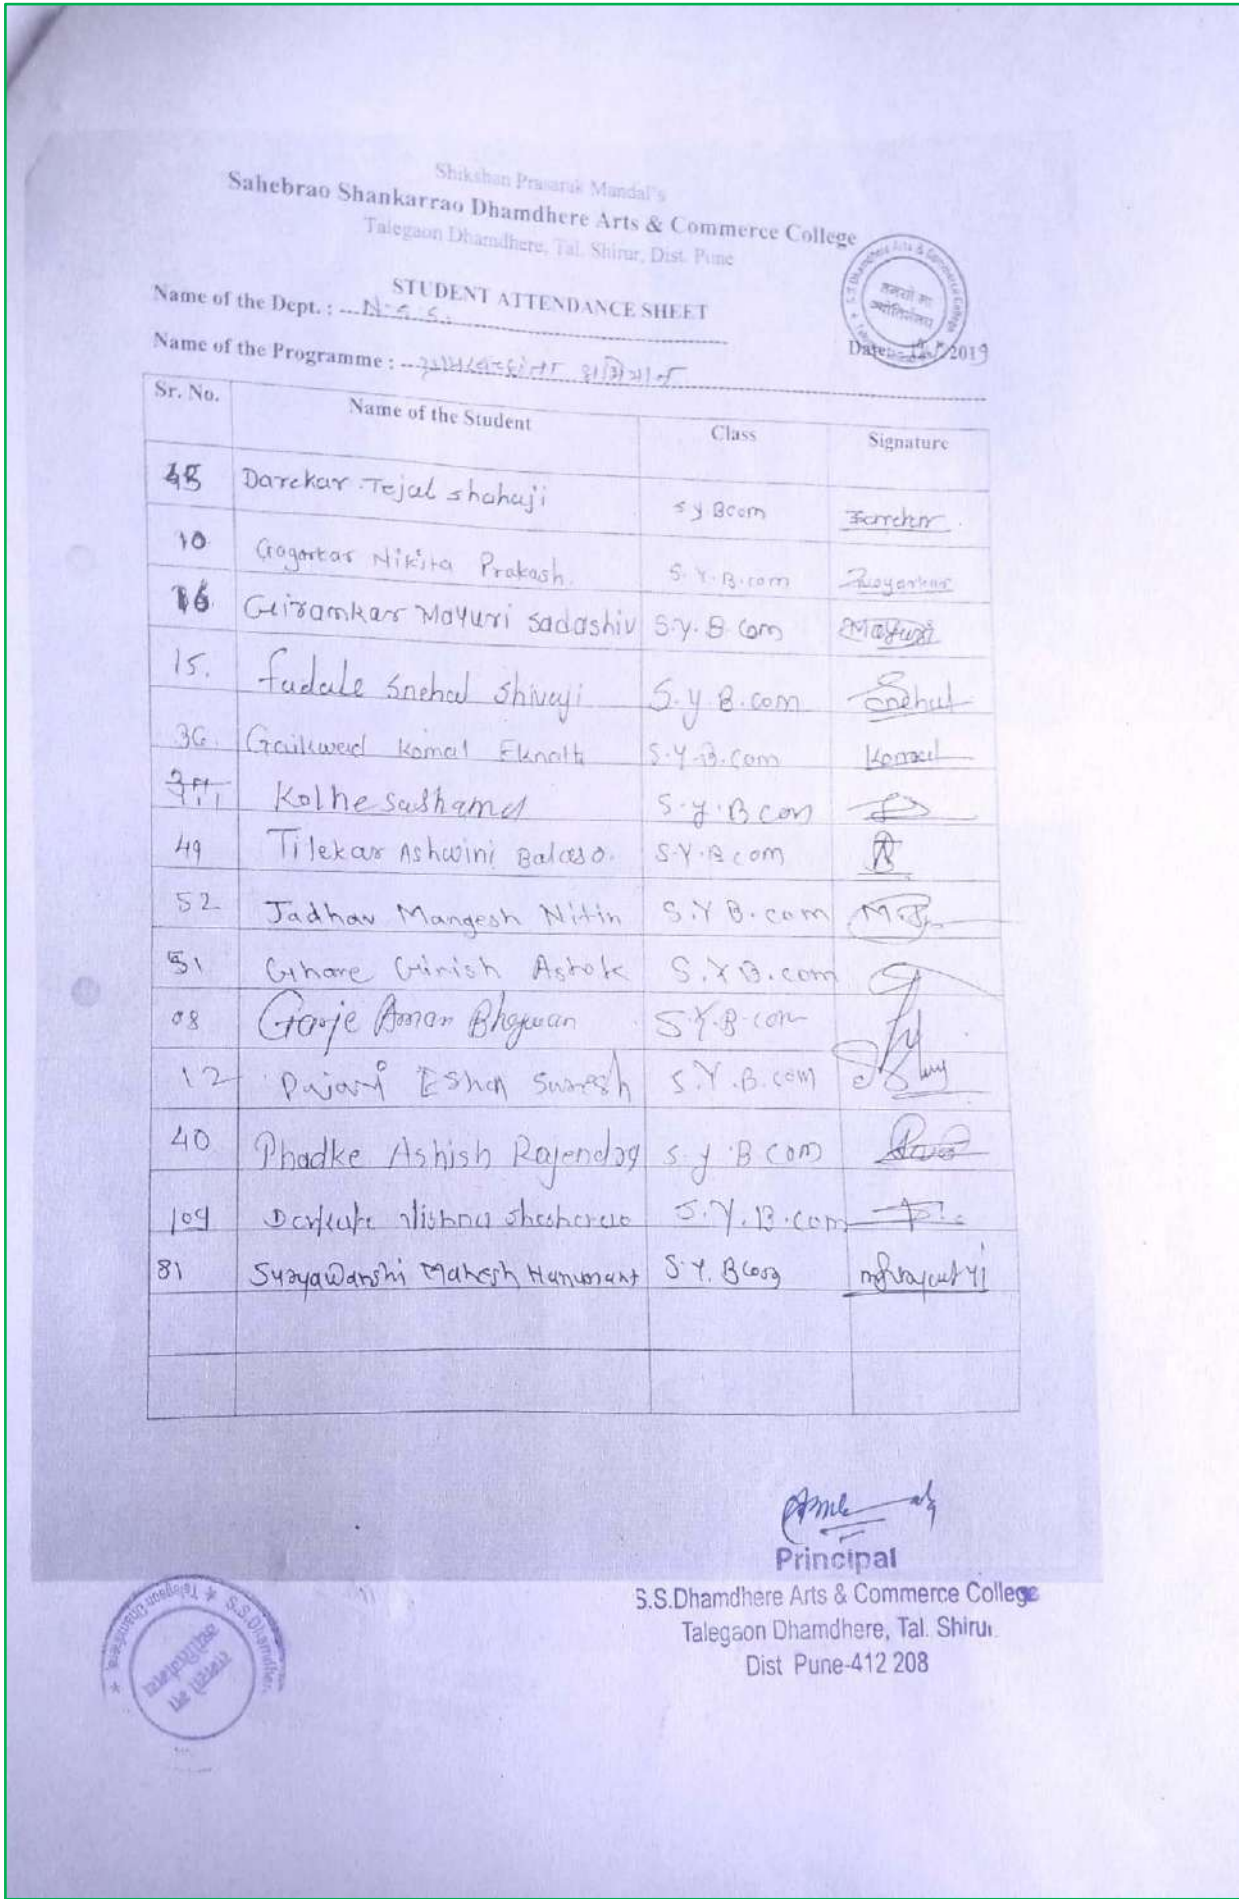 Shikshan Prasarak Mandal's
Sahebrao Shankarrao Dhamdhere Arts & Commerce College
Talegaon Dhamdhere, Tal. Shirur, Dist. Pune
STUDENT ATTENDANCE SHEET
Name of the Dept. : N.S.S.
Date: 2019
Name of the Programme :
Sr. No. Name of the Student Class Signature
45 Darekar Tejal shahaji S y Bcom
10 Gagarkar Nikita Prakash. S.Y.B.com
16 Giramkar Mayuri Sadashiv S.y.B.com Mayuri
15. fadale Snehal Shivaji S.y.B.com Snehal
36. Gaikwad Komal Eknath S.Y.B.com Komal
Kolhe S.y.B com
49 Tilekar Ashwini Balaso. S.Y.B com
52 Jadhav Mangesh Nitin S.Y B.com
51 Ghare Girish Ashok S.Y B.com
08 Gorje Aman Bhagwan S.Y.B.com
12 Pujari Esha Suresh S.Y.B.com
40 Phadke Ashish Rajendra S.y.B com
109 S.Y.B.com
81 Suryawanshi Mahesh Hanumant S.Y. Bcom
Principal
S.S.Dhamdhere Arts & Commerce College
Talegaon Dhamdhere, Tal. Shirur
Dist Pune-412 208